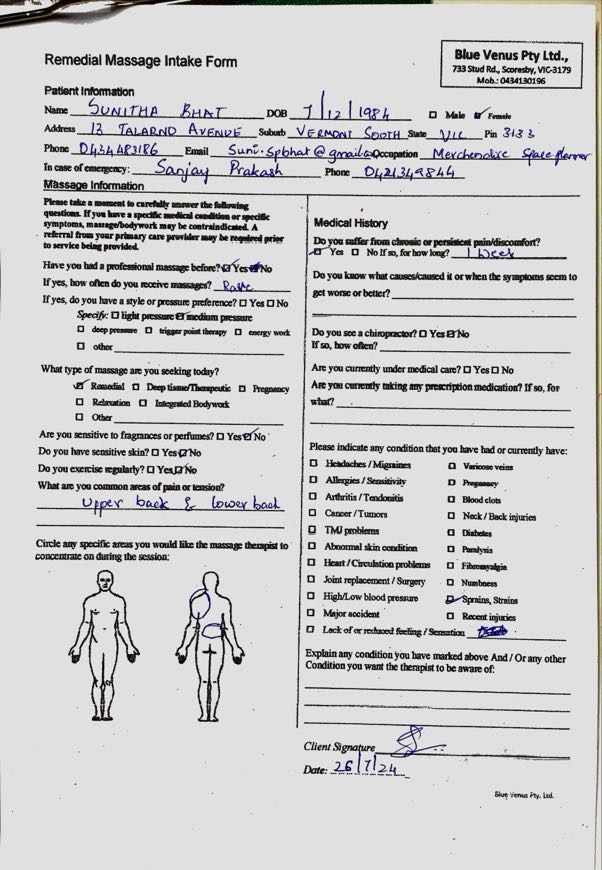 Remedial Massage Intake Form
Blue Venus Pty Ltd.,
733 Stud Rd., Scoresby, VIC-3179
Mob.: 0434130196
Patient Information
Name SUNITHA BHAT DOB 7/12/1984 ☐ Male ☑ Female
Address 13 TALARND AVENUE Suburb VERMONT SOUTH State VIC Pin 3133
Phone 0434483186 Email Suni.spbhat@gmail.co Occupation Merchendise Space planner
In case of emergency: Sanjay Prakash Phone 0421349844
Massage Information
Please take a moment to carefully answer the following
questions. If you have a specific medical condition or specific
symptoms, massage/bodywork may be contraindicated. A
referral from your primary care provider may be required prior
to service being provided.
Have you had a professional massage before? ☑ Yes ☑ No
If yes, how often do you receive massages? Rare
If yes, do you have a style or pressure preference? ☐ Yes ☐ No
Specify: ☐ light pressure ☑ medium pressure
☐ deep pressure ☐ trigger point therapy ☐ energy work
☐ other
What type of massage are you seeking today?
☑ Remedial ☐ Deep tissue/Therapeutic ☐ Pregnancy
☐ Relaxation ☐ Integrated Bodywork
☐ Other
Are you sensitive to fragrances or perfumes? ☐ Yes ☑ No
Do you have sensitive skin? ☐ Yes ☑ No
Do you exercise regularly? ☐ Yes ☑ No
What are you common areas of pain or tension?
Upper back & lower back
Circle any specific areas you would like the massage therapist to
concentrate on during the session:
Medical History
Do you suffer from chronic or persistent pain/discomfort?
☑ Yes ☐ No If so, for how long? 1 week
Do you know what causes/caused it or when the symptoms seem to
get worse or better?
Do you see a chiropractor? ☐ Yes ☑ No
If so, how often?
Are you currently under medical care? ☐ Yes ☐ No
Are you currently taking any prescription medication? If so, for
what?
Please indicate any condition that you have had or currently have:
☐ Headaches / Migraines ☐ Varicose veins
☐ Allergies / Sensitivity ☐ Pregnancy
☐ Arthritis / Tendonitis ☐ Blood clots
☐ Cancer / Tumors ☐ Neck / Back injuries
☐ TMJ problems ☐ Diabetes
☐ Abnormal skin condition ☐ Paralysis
☐ Heart / Circulation problems ☐ Fibromyalgia
☐ Joint replacement / Surgery ☐ Numbness
☐ High/Low blood pressure ☑ Sprains, Strains
☐ Major accident ☐ Recent injuries
☐ Lack of or reduced feeling / Sensation
Explain any condition you have marked above And / Or any other
Condition you want the therapist to be aware of:
Client Signature
Date: 26/7/24
Blue Venus Pty. Ltd.